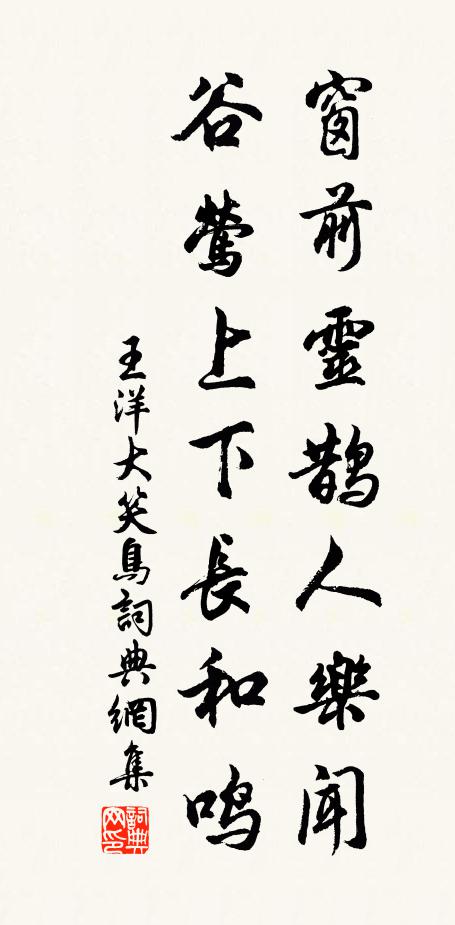 窗前靈鵲人樂聞
谷鶯上下長和鸣
王洋大笑鳥詞典網集
詞典
网印